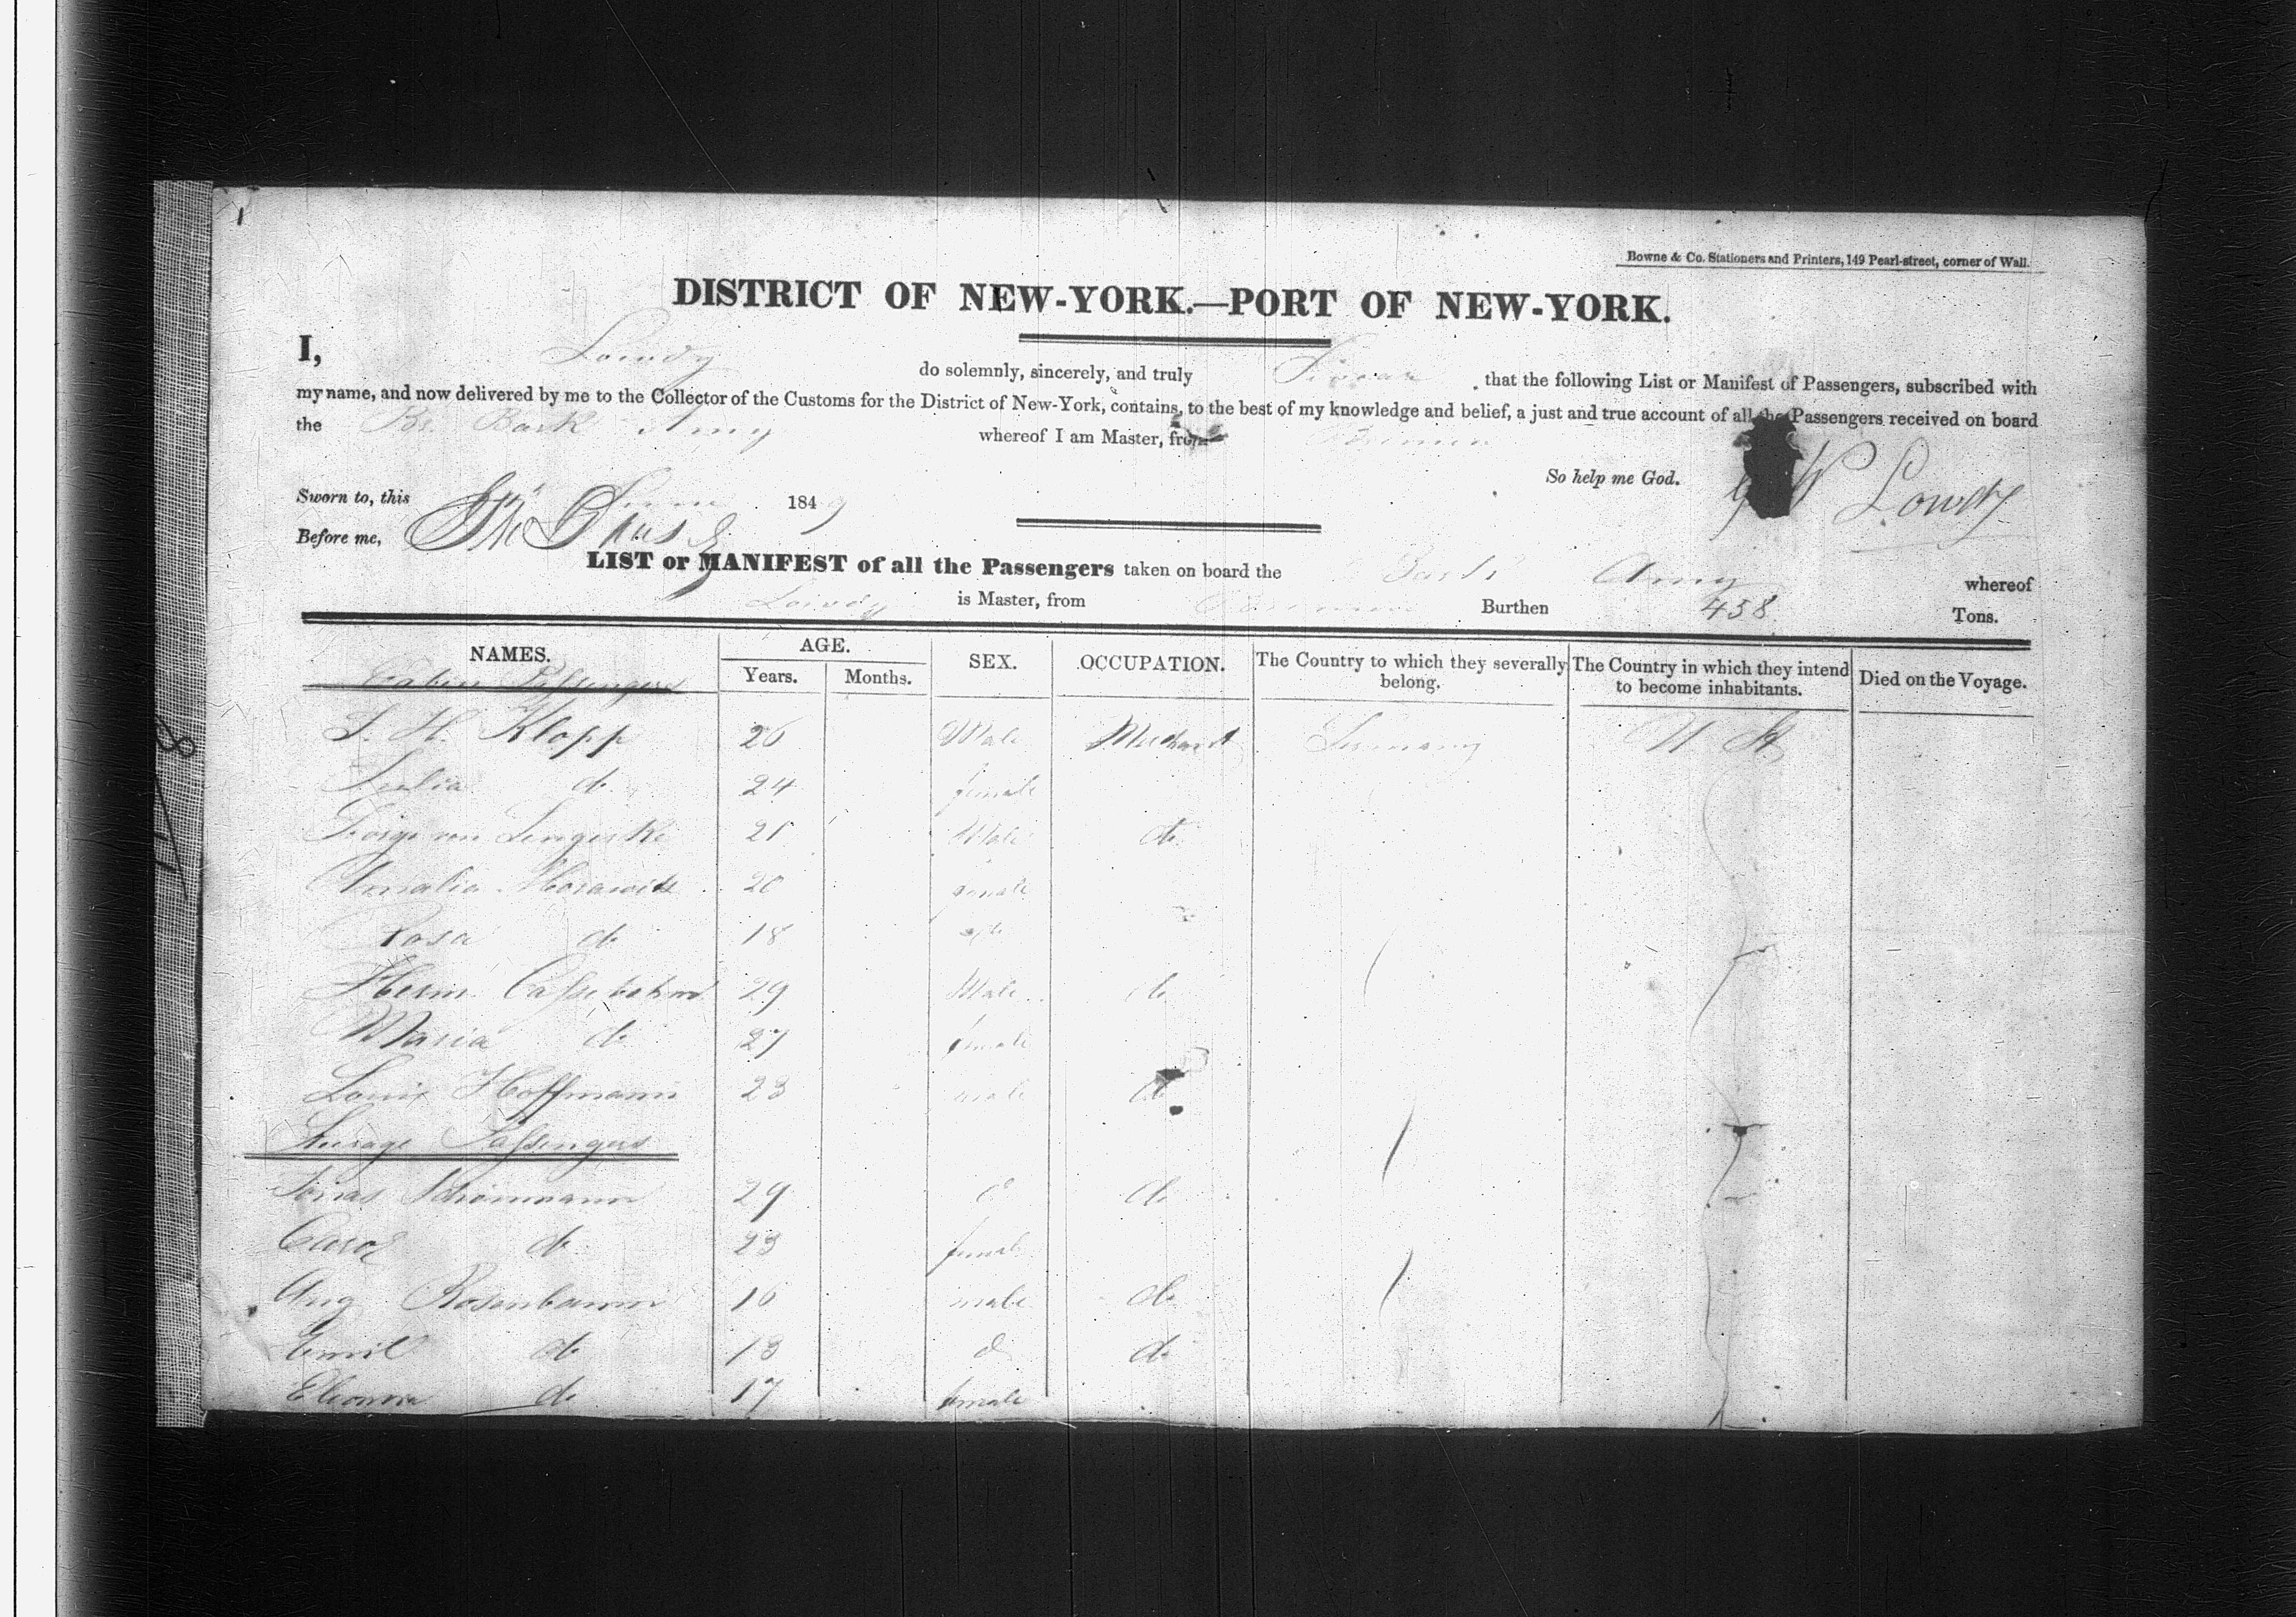 Bowne & Co. Stationers and Printers, 149 Pearl-street, corner of Wall.
DISTRICT OF NEW-YORK.—PORT OF NEW-YORK.
I, Lowdy do solemnly, sincerely, and truly Swear that the following List or Manifest of Passengers, subscribed with
my name, and now delivered by me to the Collector of the Customs for the District of New-York, contains, to the best of my knowledge and belief, a just and true account of all the Passengers received on board
the Br. Bark Amy whereof I am Master, from Bremen
So help me God. W Lowdy
Sworn to, this June 1849
Before me,
LIST or MANIFEST of all the Passengers taken on board the Bark Amy whereof
Lowdy is Master, from Bremen Burthen 458 Tons.
NAMES. AGE. SEX. OCCUPATION. The Country to which they severally belong. The Country in which they intend to become inhabitants. Died on the Voyage.
Years. Months.
Cabin Passengers
J. H. Klopp 26 Male Merchant Germany U St
Julia do 24 female
von Lengerke 21 Male do
Amalia Horawitz 20 female
Rosa do 18 do
Herm. Cassebohm 29 Male do
Maria do 27 female
Louis Hoffmann 23 male do
Steerage Passengers
Jonas Schönmann 29 do do
Carol do 23 female
Aug Rosenbaum 16 male do
Emil do 13 do do
Eleonora do 17 female